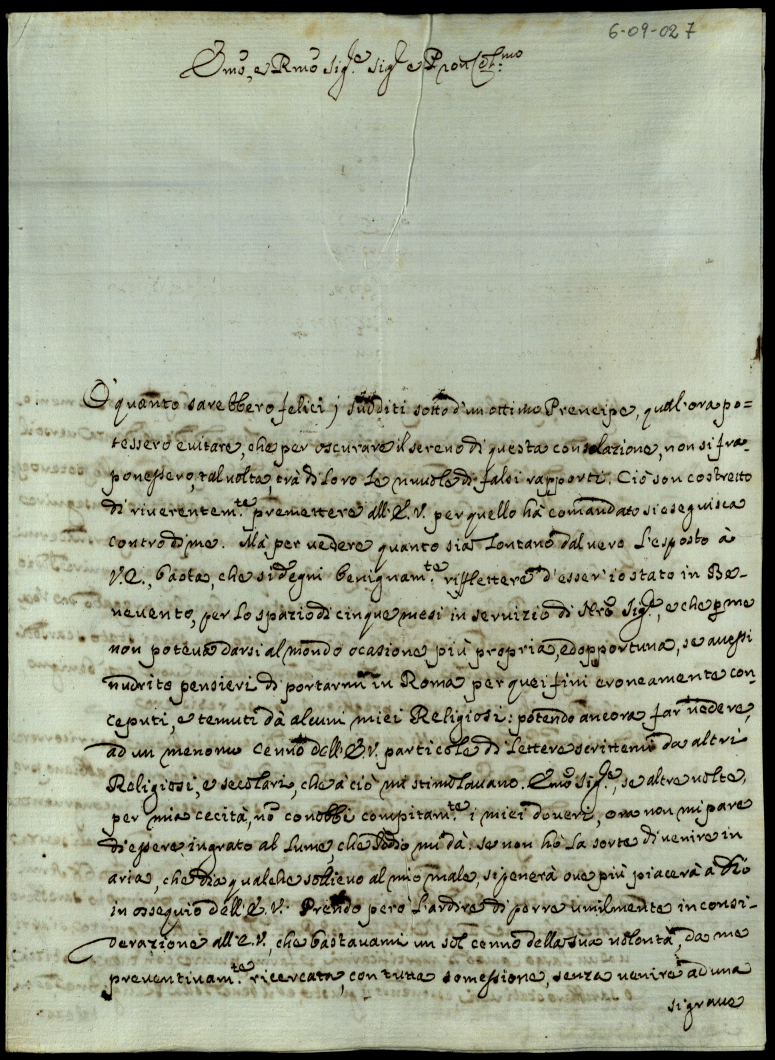 6-09-027
Emo, e Rmo Sig.e Sig.e e Pron Col.mo
O' quanto sarebbero felici j sudditi sotto d'un ottimo Prencipe, qual'ora po=
tessero evitare, che per oscurare il sereno di questa consolazione, non si fra=
ponessero, tal volta, trà di loro le nuvole di falsi rapporti. Ciò son costretto
di riverentem.te premettere all'E.V. per quello hà comandato si eseguisca
contro di me. Mà per vedere quanto sia lontano dal vero l'esposto à
V.E., basta, che si degni benignam.te riflettere d'esser'io stato in Be-
nevento, per lo spazio di cinque mesi in servizio di Nro Sig.e, e che per me
non poteva darsi al mondo ocasione più propria, ed opportuna, se avessi
nudrito pensieri di portarmi in Roma per quei fini eroneamente con=
ceputi, e temuti dà alcuni miei Religiosi: potendo ancora far vedere,
ad un menomo cenno dell'E.V. particole di lettere scrittemi da altri
Religiosi, e secolari, che à ciò mi stimolavano. Emo Sig.e, se altre volte,
per mia cecità, nō conobbi compitam.te i miei doveri, ora non mi pare
d'essere ingrato al lume, che Iddio mi dà: se non hò la sorte di venire in
aria, che dia qualche sollievo al mio male, si penerà ove più piacerà a Dio
in ossequio dell'E.V. Prendo però l'ardire di porre umilmente in consi-
derazione all'E.V., che bastavami un sol cenno della sua volontà, da me
preventivam.te ricercata, con tutta somessione, senza venire ad una
si grave